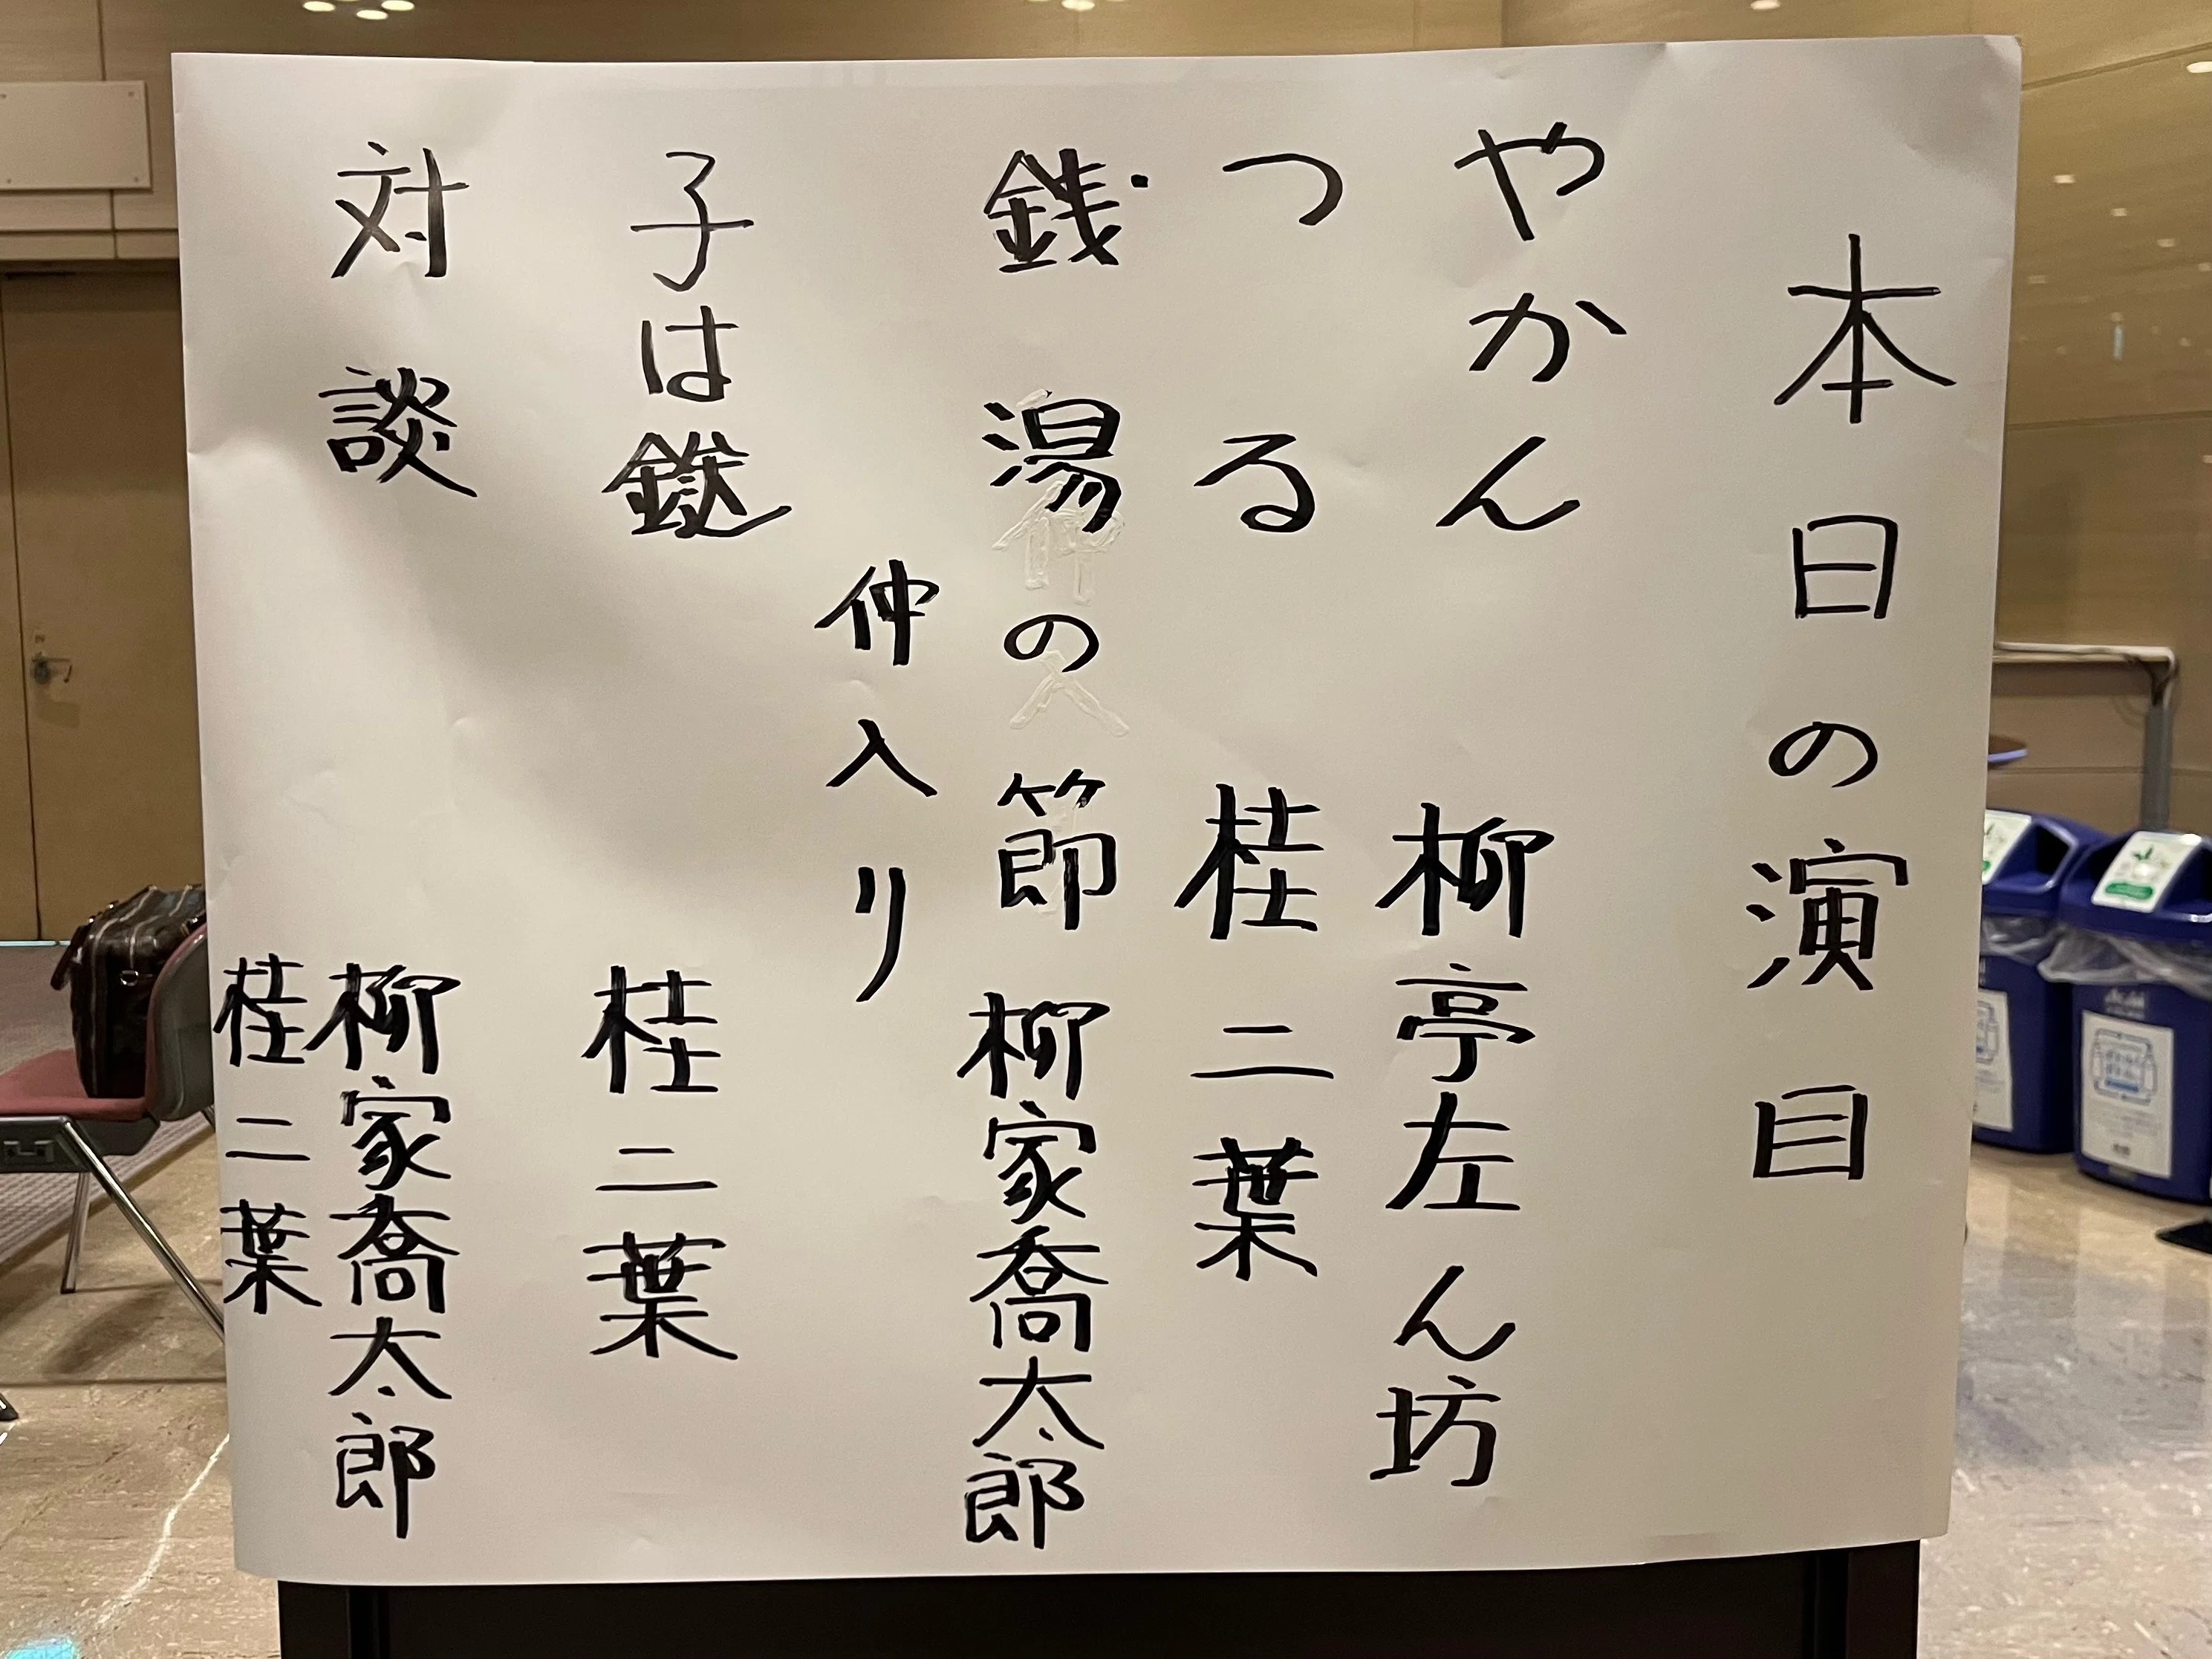 本日の演目
やかん 柳亭左ん坊
つる 桂二葉
銭湯の節 柳家喬太郎
仲入り
子は鎹 桂二葉
対談 柳家喬太郎
桂二葉